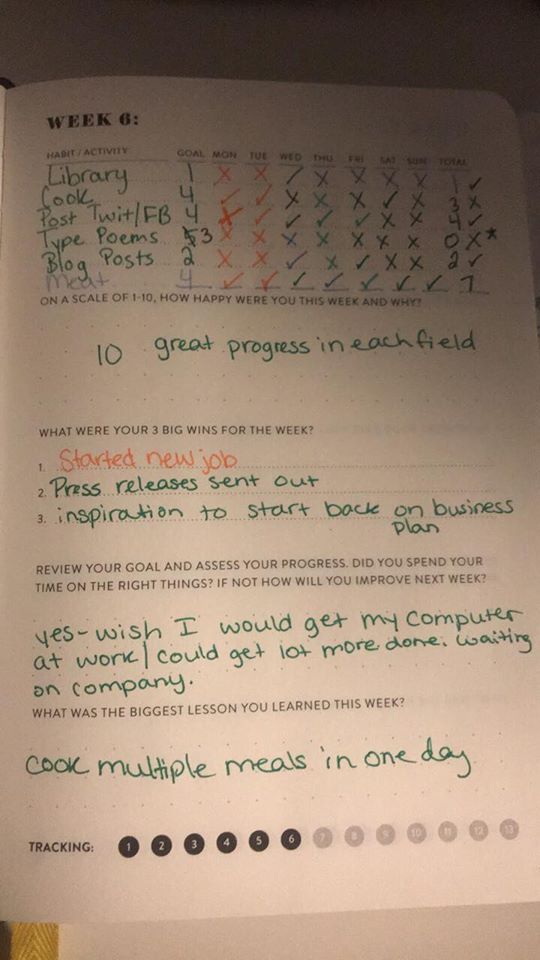 WEEK 6:
HABIT / ACTIVITY GOAL MON TUE WED THU FRI SAT SUN TOTAL
Library 1 X X ✓ X X X X 1 ✓
Cook 4 ✓ ✓ X X X ✓ X 3 X
Post Twit/FB 4 ✓ ✓ ✓ ✓ X X 4 ✓
Type Poems 3 X X X X X X X 0 X*
Blog Posts 2 X X ✓ X ✓ X X 2 ✓
Meat 4 ✓ ✓ ✓ ✓ ✓ ✓ ✓ 7
ON A SCALE OF 1-10, HOW HAPPY WERE YOU THIS WEEK AND WHY?
10 great progress in each field
WHAT WERE YOUR 3 BIG WINS FOR THE WEEK?
1. Started new job
2. Press releases sent out
3. inspiration to start back on business
plan
REVIEW YOUR GOAL AND ASSESS YOUR PROGRESS. DID YOU SPEND YOUR
TIME ON THE RIGHT THINGS? IF NOT HOW WILL YOU IMPROVE NEXT WEEK?
yes - wish I would get my computer
at work I could get lot more done. waiting
on company.
WHAT WAS THE BIGGEST LESSON YOU LEARNED THIS WEEK?
cook multiple meals in one day
TRACKING: 1 2 3 4 5 6 7 8 9 10 11 12 13